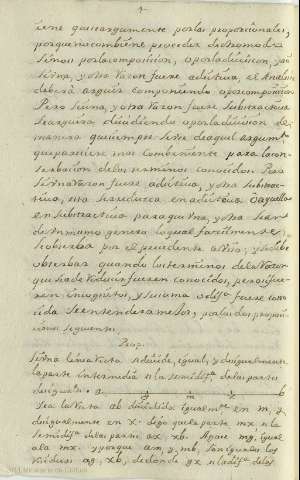 tiene que arguirse por las proporcionales,
porque no combiene proceder de otro modo
sino por la composicion, o por la división,
si una, y otra razon fuese adictiva, el Analista
deberá arguir componiendo, o por composicion
Pero si una, y otra razon fuese Subtractiva
se arguirá dividiendo o por la division de
manera que siempre sirva de aquel argumto
que pareciere mas combeniente para la con-
servacion de los terminos conocidos. Pero
si una razon fuere adictiva, y otra subtrac-
tiva, esta se reducirá en adictiva o aquella
en subtractiva para que una, y otra sean
de un mismo genero lo qual facilmente
se
por el precedente aviso; y se debe
observar quando los terminos de la razon
que se ha de reducir fueren conocidos, pero
ren incognitos, y su suma o difa. fuese cono-
cida se entenderá mejor, por las dos proposi-
ciones siguientes.
Prop.
Si una linea recta se divide, igual, y desigualmente
la parte intermedia es la semidifa. de las partes
desiguales. a g m x b
Sea la recta ab dividida igualmte. en m, y
desigualmente en x. digo que la parte mx es la
semidifa. de las partes ax, xb. Hagase mg, igual
a la mx. y porque am, y mb, son iguales los
residuos ag, xb, de donde gx es la difa. de las